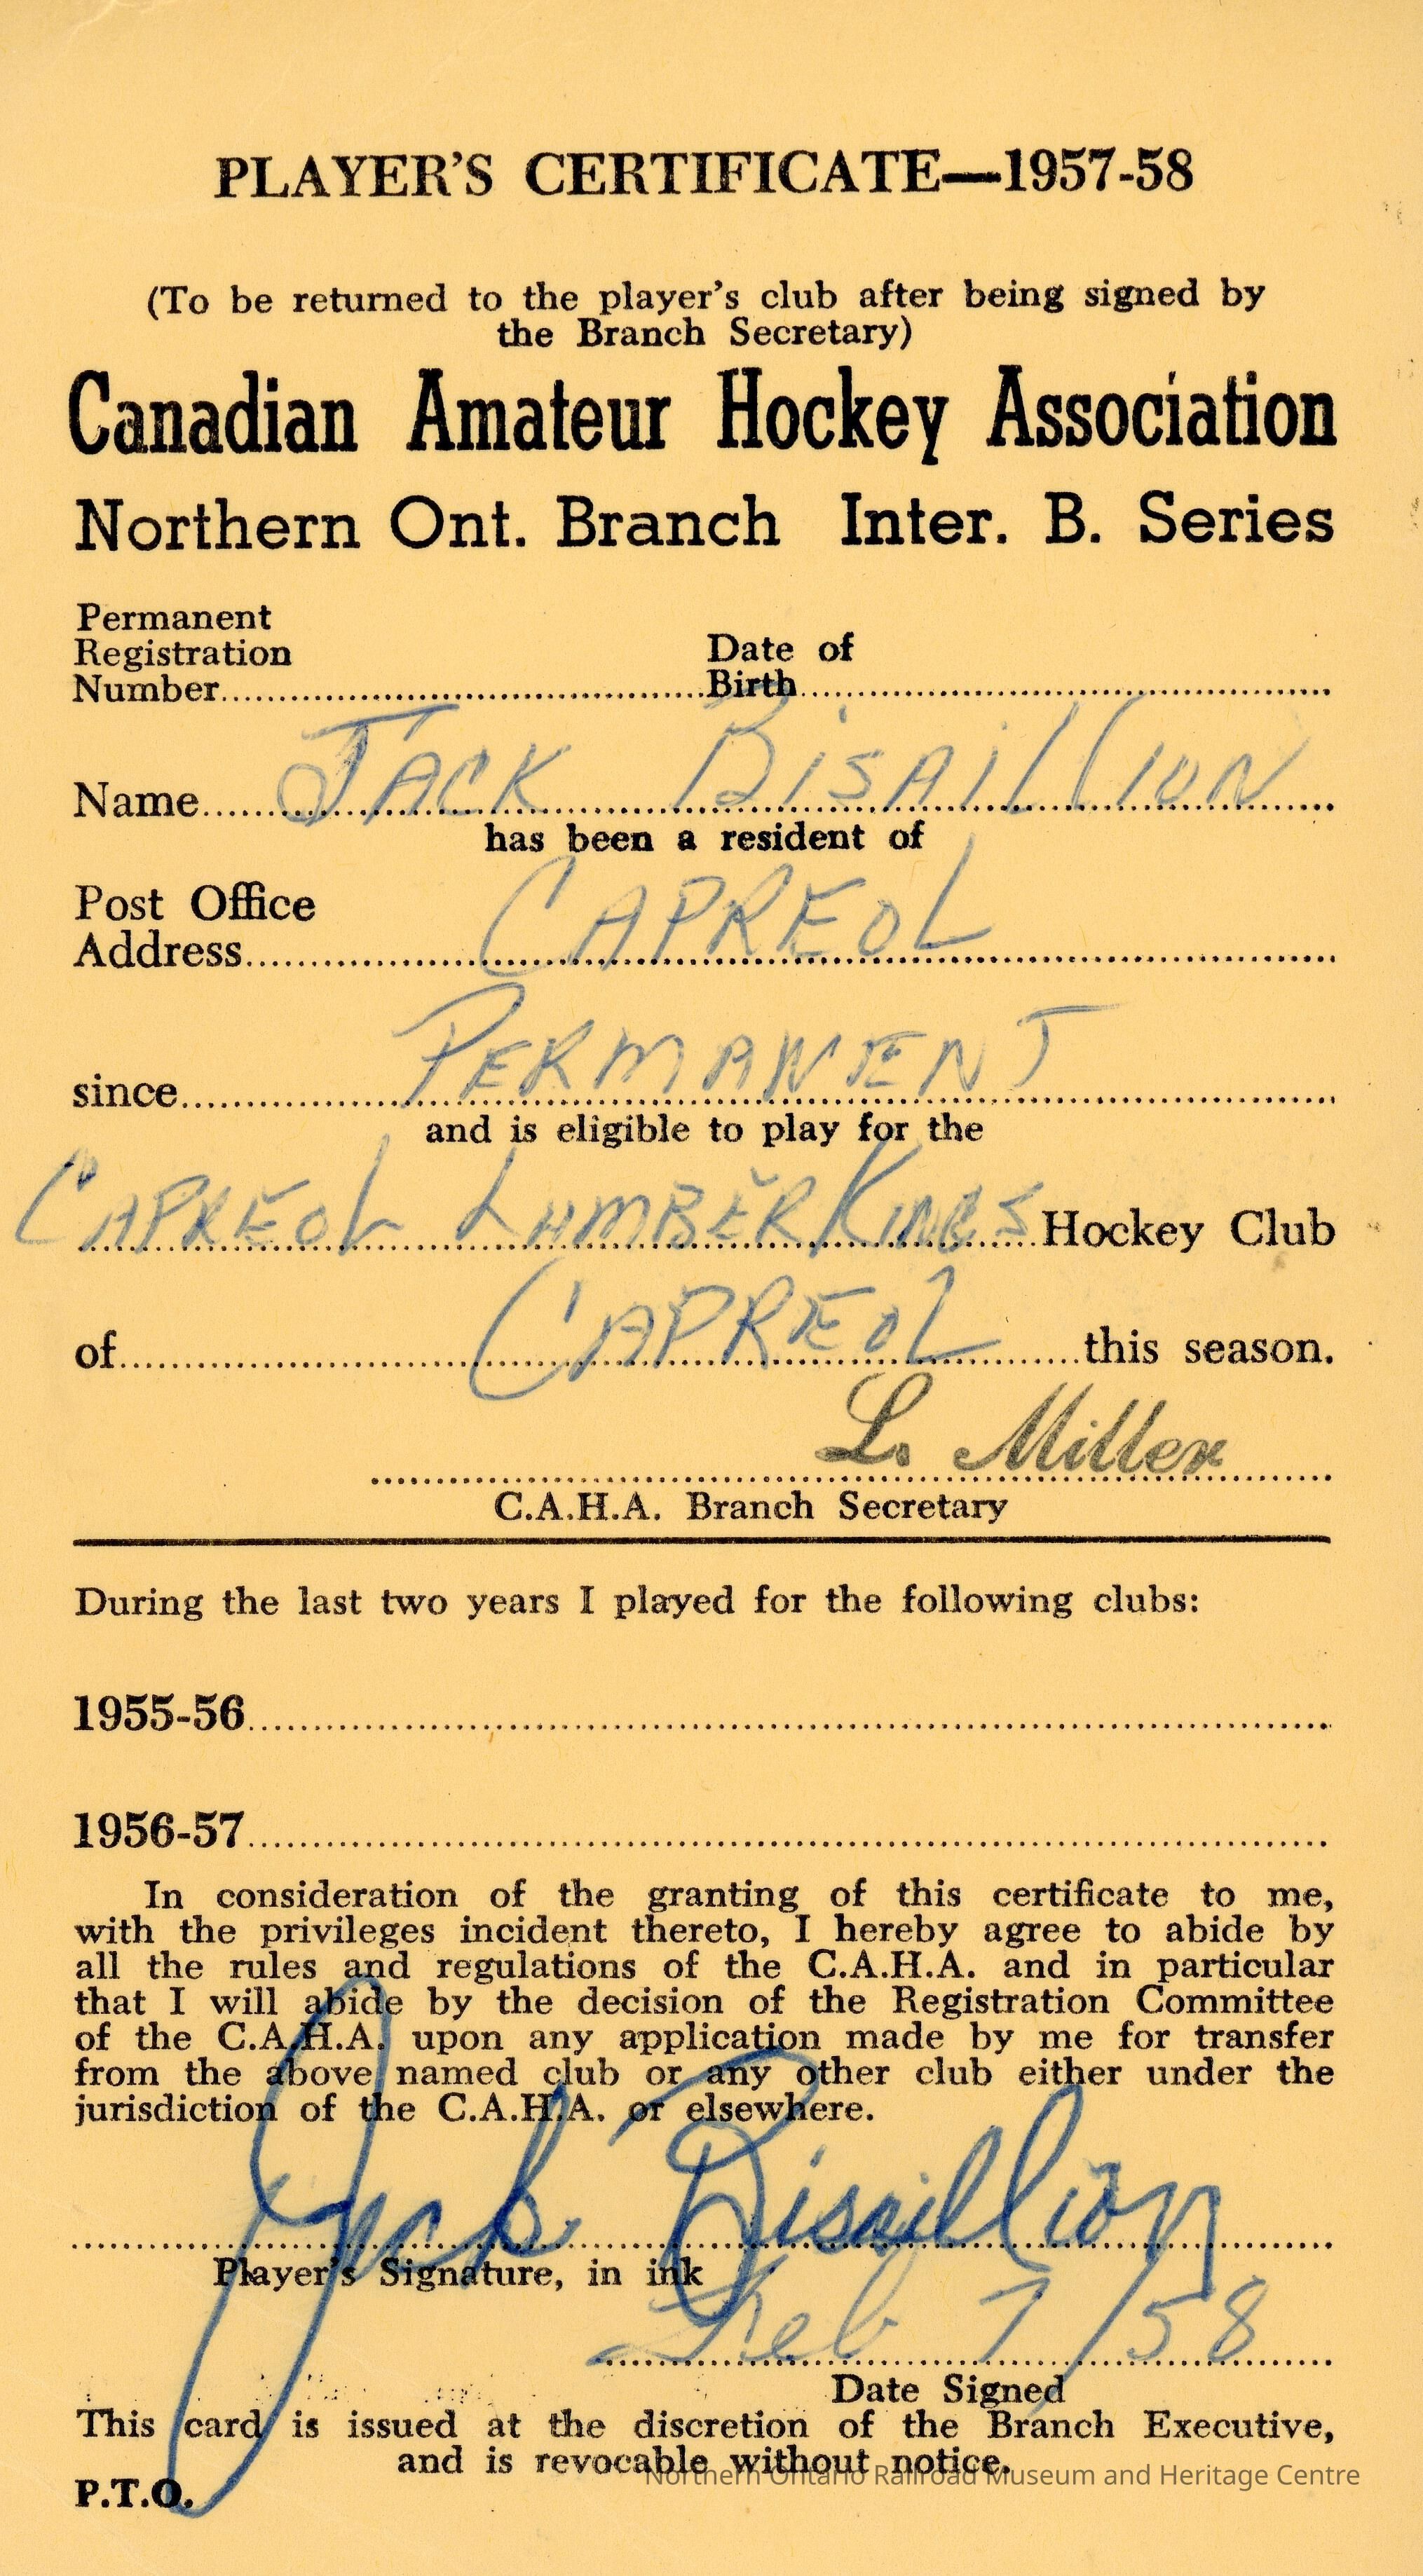 PLAYER'S CERTIFICATE—1957-58
(To be returned to the player's club after being signed by
the Branch Secretary)
Canadian Amateur Hockey Association
Northern Ont. Branch Inter. B. Series
Permanent
Registration
Number
Date of
Birth
Name JACK Disaillion
has been a resident of
Post Office
Address CAPREOL
since PERMANENT
and is eligible to play for the
CAPREOL LUMBER KINGS Hockey Club
of CAPREOL this season.
L. Miller
C.A.H.A. Branch Secretary
During the last two years I played for the following clubs:
1955-56
1956-57
In consideration of the granting of this certificate to me,
with the privileges incident thereto, I hereby agree to abide by
all the rules and regulations of the C.A.H.A. and in particular
that I will abide by the decision of the Registration Committee
of the C.A.H.A. upon any application made by me for transfer
from the above named club or any other club either under the
jurisdiction of the C.A.H.A. or elsewhere.
Jack Disaillion
Player's Signature, in ink
Feb 7/58
Date Signed
This card is issued at the discretion of the Branch Executive,
and is revocable without notice.
Northern Ontario Railroad Museum and Heritage Centre
P.T.O.